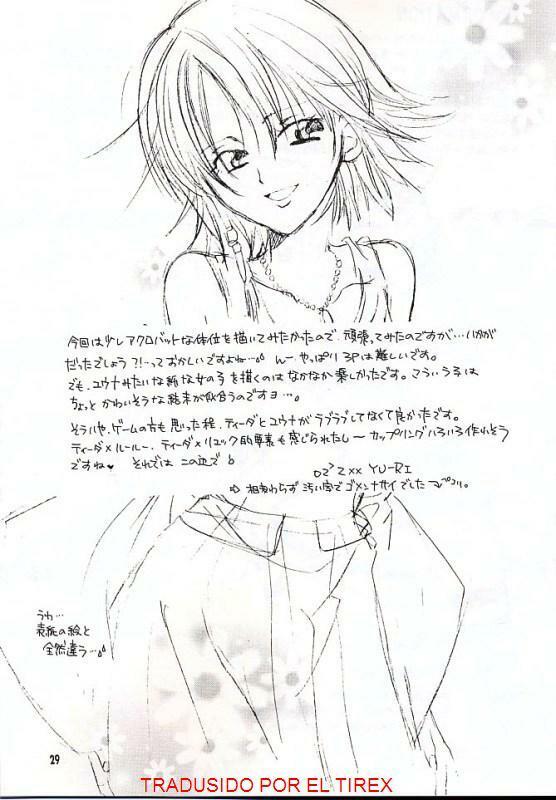 今回は少しアクロバットな体位を描いてみたかったので、頑張ってみたのですが…いかが
だったでしょう?!…っておかしいですよね…。んーやっぱり3Pは難しいです。
でも、ユウナみたいな な女の子を描くのはなかなか楽しかったです。こういう子は
ちょっとかわいそうな結末が似合うのですヨ…。
そういや、ゲームの方も思った程、ティーダとユウナがラブラブしてなくて良かったです。
ティーダ×ルールー、ティーダ×リュック的要素も感じられたし〜カップリングいろいろ作れそう
ですね♥ それではこの辺で
YU-RI
⇨ 相変わらず汚い字でゴメンナサイでした ペコリ。
うわ…
表紙の絵と
全然違う…
29
TRADUSIDO POR EL TIREX